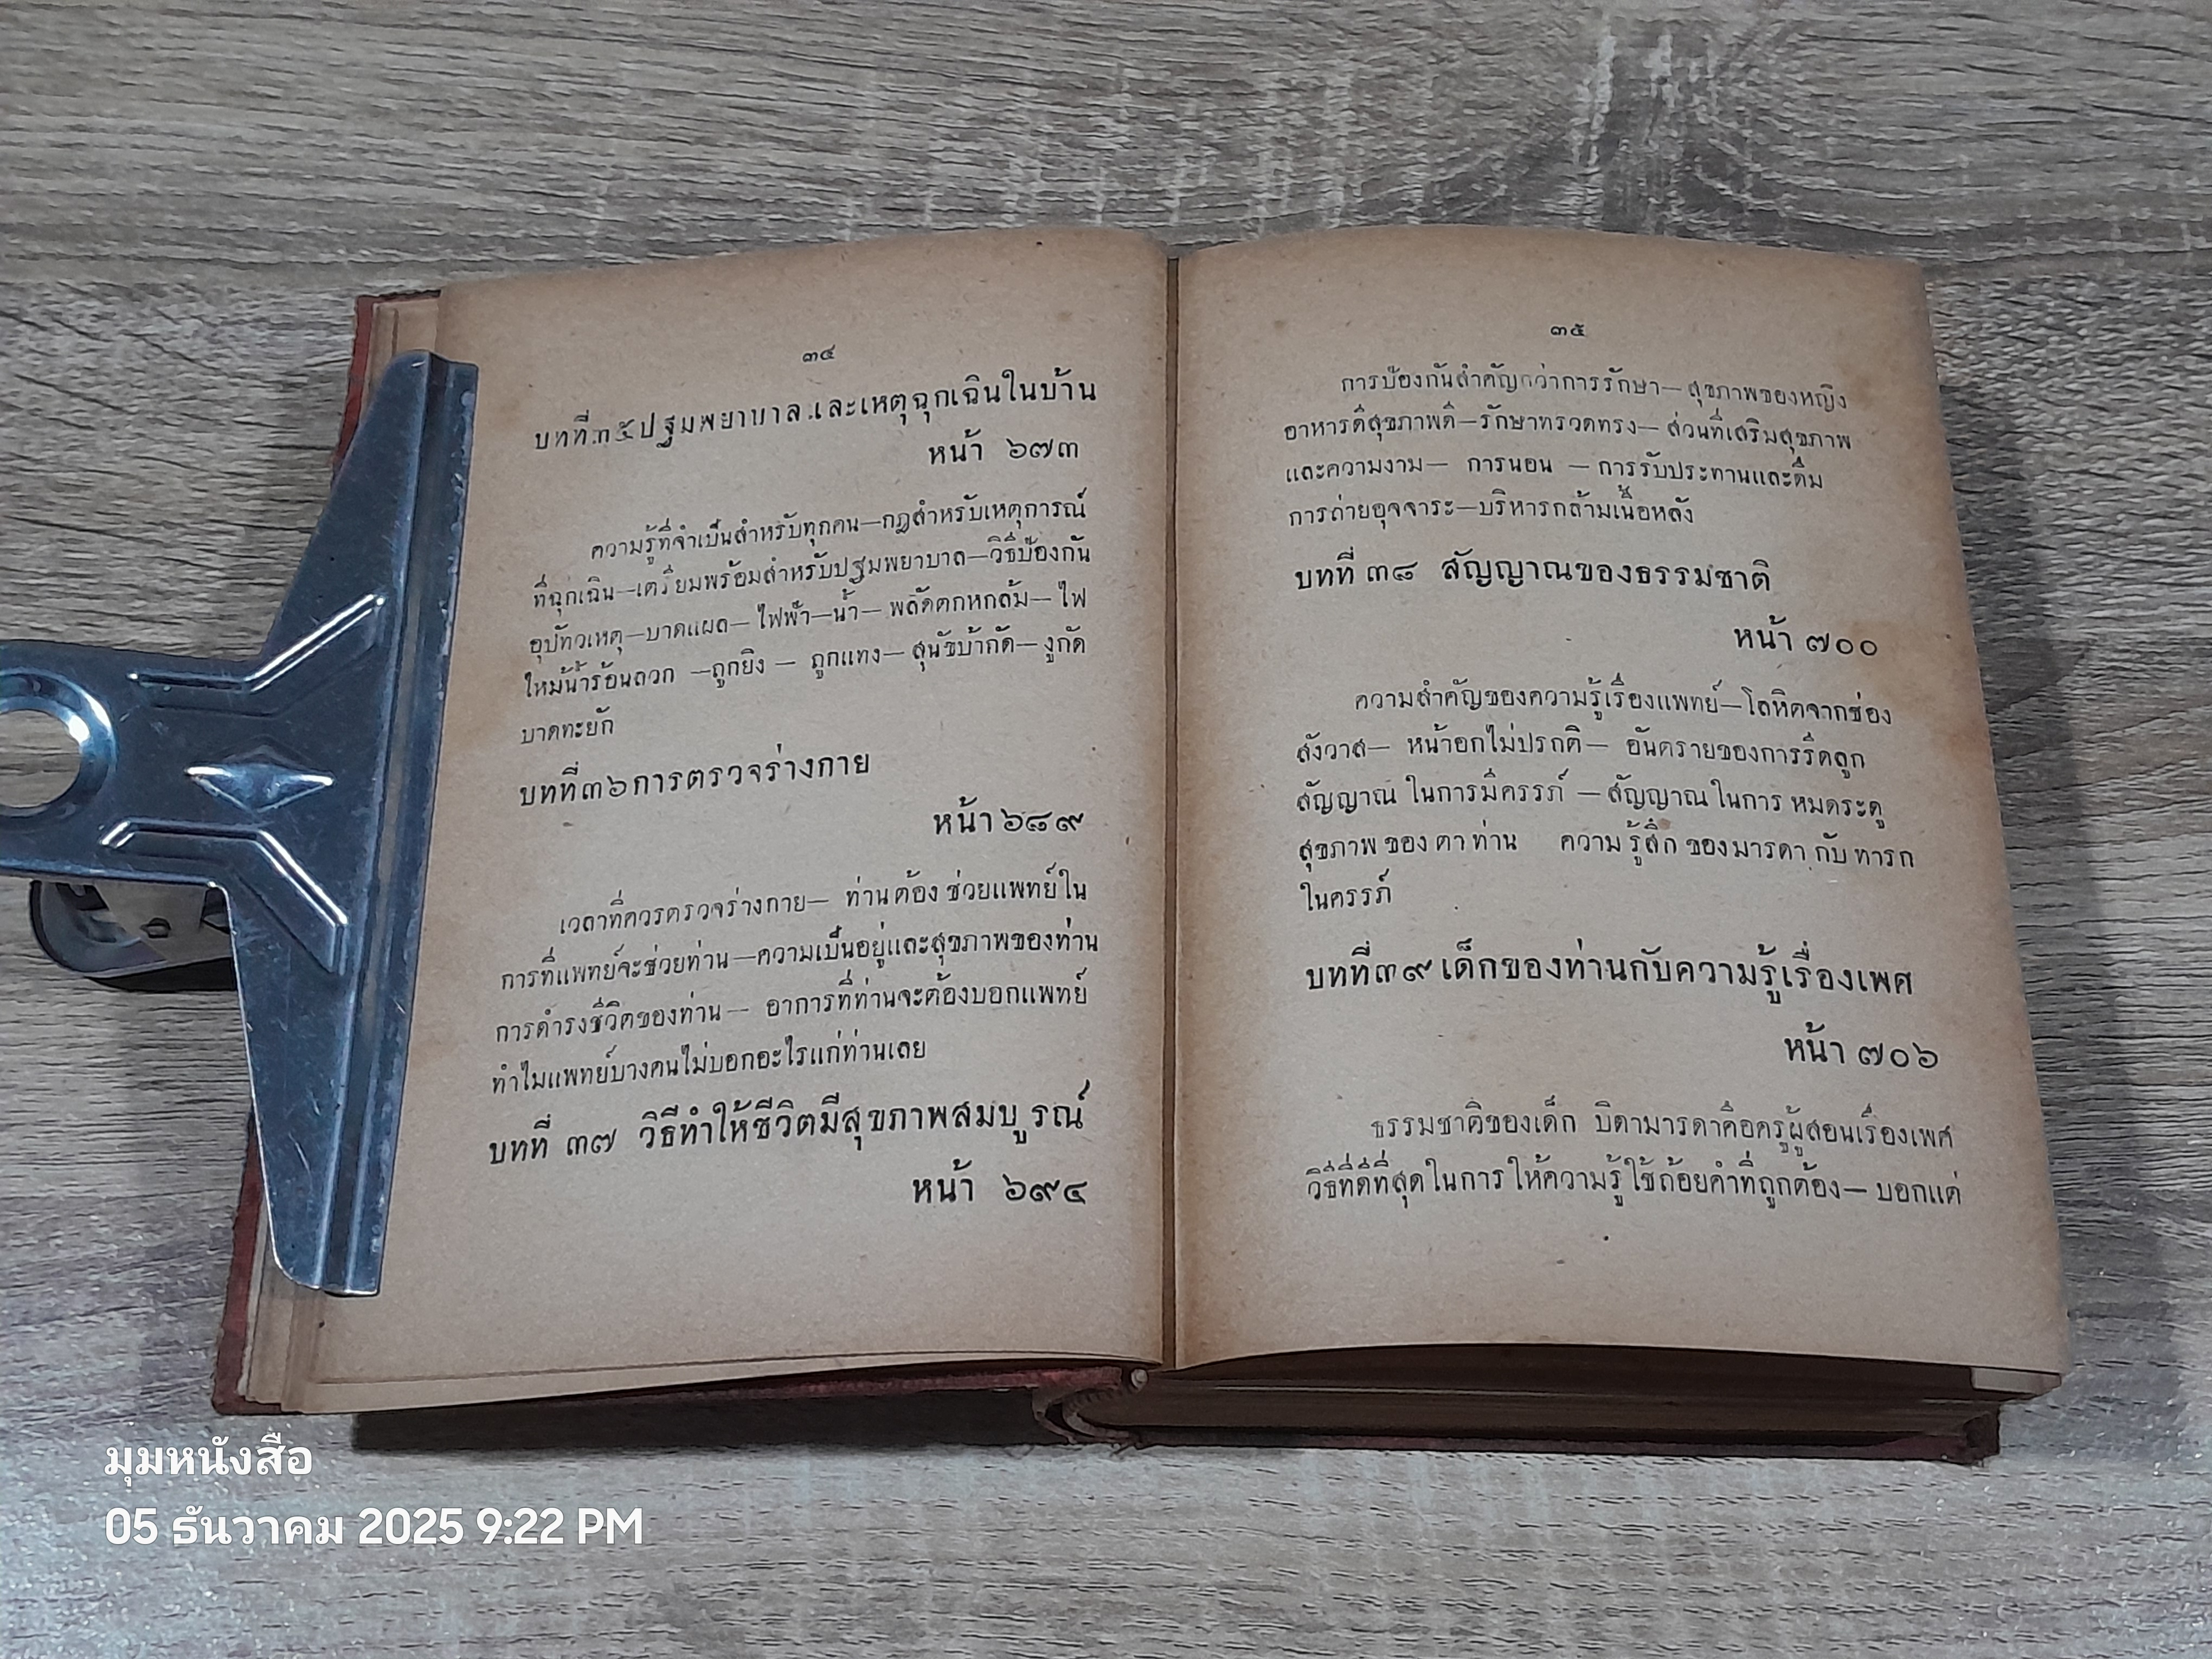 ๓๔
บทที่ ๓๕ ปฐมพยาบาล และเหตุฉุกเฉินในบ้าน
หน้า ๖๗๓
ความรู้ที่จำเป็นสำหรับทุกคน—กฎสำหรับเหตุการณ์
ที่ฉุกเฉิน—เตรียมพร้อมสำหรับปฐมพยาบาล—วิธีป้องกัน
อุบัทวเหตุ—บาดแผล—ไฟฟ้า—น้ำ—พลัดตกหกล้ม—ไฟ
ไหม้น้ำร้อนลวก —ถูกยิง — ถูกแทง—สุนัขบ้ากัด—งูกัด
บาดทะยัก
บทที่ ๓๖ การตรวจร่างกาย
หน้า ๖๘๙
เวลาที่ควรตรวจร่างกาย— ท่านต้อง ช่วยแพทย์ใน
การที่แพทย์จะช่วยท่าน—ความเป็นอยู่และสุขภาพของท่าน
การดำรงชีวิตของท่าน— อาการที่ท่านจะต้องบอกแพทย์
ทำไมแพทย์บางคนไม่บอกอะไรแก่ท่านเลย
บทที่ ๓๗ วิธีทำให้ชีวิตมีสุขภาพสมบูรณ์
หน้า ๖๙๔
๓๕
การป้องกันสำคัญกว่าการรักษา—สุขภาพของหญิง
อาหารดีสุขภาพดี—รักษาทรวดทรง—ส่วนที่เสริมสุขภาพ
และความงาม— การนอน —การรับประทานและดื่ม
การถ่ายอุจจาระ—บริหารกล้ามเนื้อหลัง
บทที่ ๓๘ สัญญาณของธรรมชาติ
หน้า ๗๐๐
ความสำคัญของความรู้เรื่องแพทย์—โลหิตจากช่อง
สังวาส— หน้าอกไม่ปรกติ— อันตรายของการรีดลูก
สัญญาณ ในการมีครรภ์ —สัญญาณ ในการ หมดระดู
สุขภาพ ของ ตา ท่าน ความ รู้สึก ของ มารดา กับ ทารก
ในครรภ์
บทที่ ๓๙ เด็กของท่านกับความรู้เรื่องเพศ
หน้า ๗๐๖
ธรรมชาติของเด็ก บิดามารดาคือครูผู้สอนเรื่องเพศ
วิธีที่ดีที่สุดในการให้ความรู้ ใช้ถ้อยคำที่ถูกต้อง—บอกแต่
มุมหนังสือ
05 ธันวาคม 2025 9:22 PM